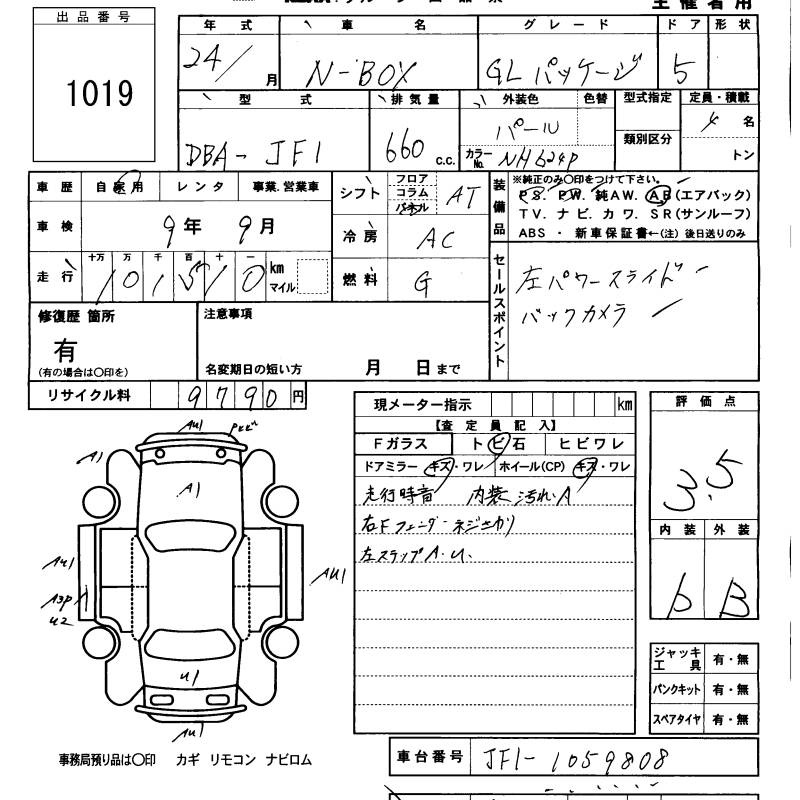 主催者用
出品番号
1019
年式 車名 グレード ドア 形状
24/ 月 N-BOX GLパッケージ 5
型式 排気量 外装色 色替 型式指定 定員・積載
DBA-JF1 660 c.c. パール カラーNo. NH624P 類別区分 4 名
トン
車歴 自家用 レンタ 事業.営業車
車検 9年 9月
走行 十万 万 千 百 十 一
101510 km マイル
シフト フロア コラム パネル AT
冷房 AC
燃料 G
装備品
※純正のみ〇印をつけて下さい。
PS. PW. 純AW. AB(エアバック)
TV. ナビ. カワ. SR(サンルーフ)
ABS ・ 新車保証書←(注) 後日送りのみ
セールスポイント
左パワースライド
バックカメラ
修復歴 箇所
有
(有の場合は〇印を)
注意事項
名変期日の短い方 月 日まで
リサイクル料 9790 円
現メーター指示 km
【査定員記入】
Fガラス トビ石 ヒビワレ
ドアミラー キズ・ワレ ホイール(CP) キズ・ワレ
走行時音 内装 汚れ.A
右Fフェンダーネジさがり
左ステップA.U.
評価点
3.5
内装 外装
b B
ジャッキ工具 有・無
パンクキット 有・無
スペアタイヤ 有・無
AU1
A1
A1
AU1
A3P
U2
AU1
U1
AU1
事務局預り品は〇印 カギ リモコン ナビロム
車台番号 JF1-1059808